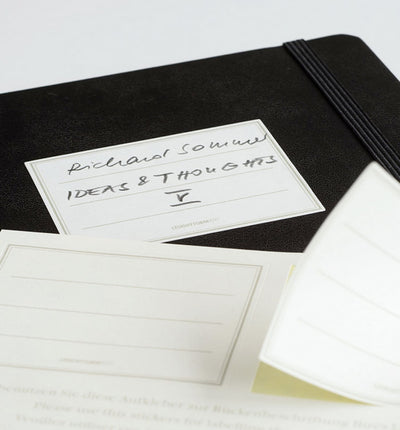 Richard Sommer
IDEAS & THOUGHTS
V
LEUCHTTURM1917
LEUCHTTURM1917
benutzen Sie diese Aufkleber zur Rückenbeschriftung Ihres
Please use this stickers for labeling